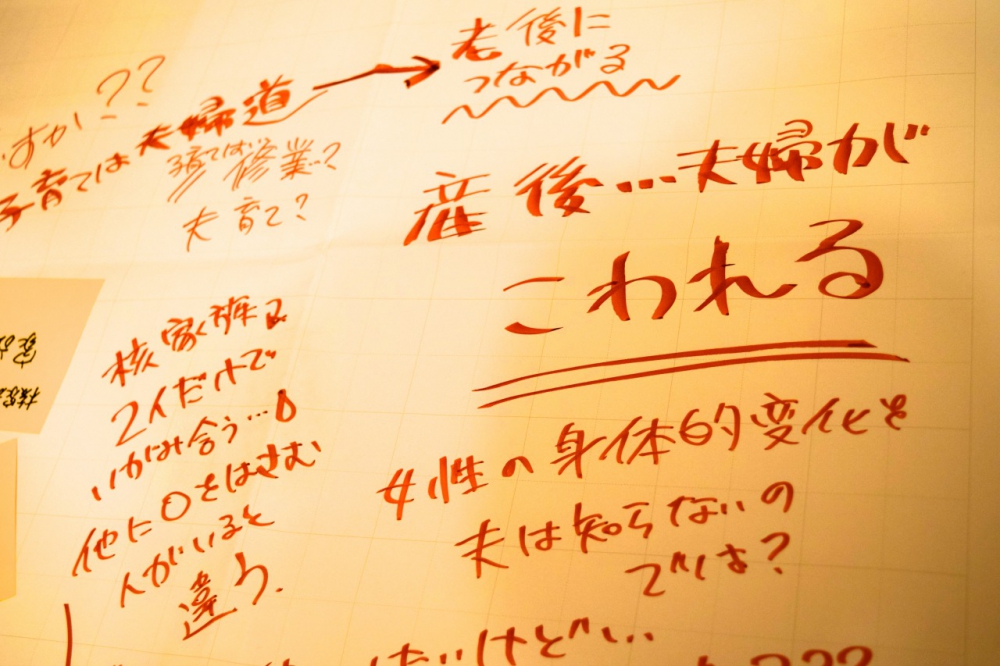 すか???
子育ては夫婦道 → 老後に
つながる
子育ては修業?
夫育て?
産後…夫婦が
こわれる
核家族は
2人だけで
いがみ合う…
他に口をはさむ
人がいると
違う.
女性の身体的変化を
夫は知らないの
では?
けど…